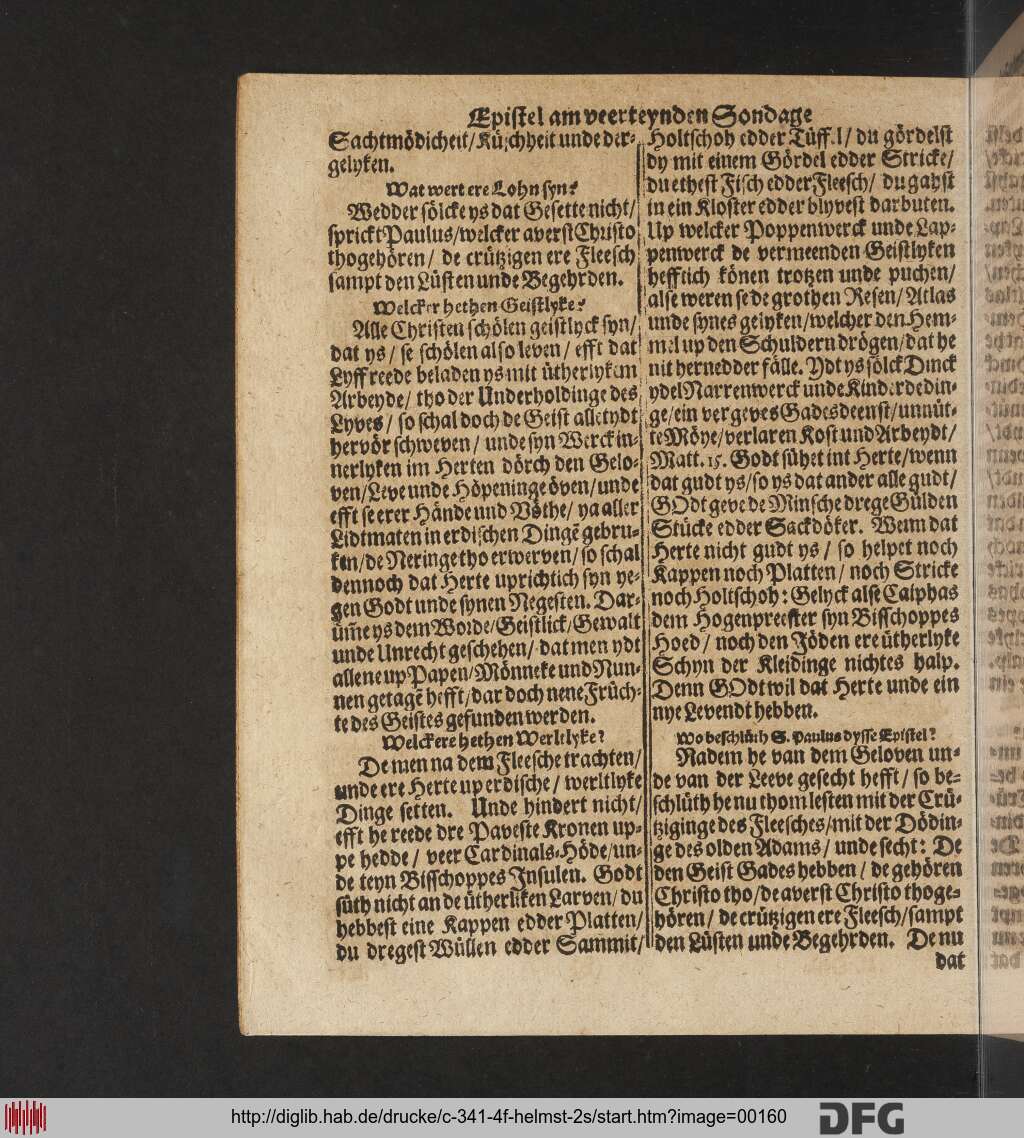 Epistel am veerteynden Sondage
Sachtmödicheit/Küschheit unde der-
gelyken.
Wat wert ere Lohn syn?
Wedder sölcke ys dat Gesette nicht/
sprickt Paulus/welcker averst Christo
thogehören/ de crützigen ere Fleesch
sampt den Lüsten unde Begehrden.
Welcker hethen Geistlyke?
Alle Christen schölen geistlyck syn/
dat ys/ se schölen also leven/ efft dat
Lyff reede beladen ys mit ütherlykem
Arbeyde/ tho der Underholdinge des
Lyves/ so schal doch de Geist alle tydt
hervör schweven/ unde syn Werck in-
nerlyken im Herten dörch den Gelo-
ven/Leve unde Höpeninge öven/unde
efft se erer Hände und Vöthe/ ya aller
Lidtmaten in erdischen Dingē gebru-
ken/de Neringe tho erwerven/so schal
dennoch dat Herte uprichtich syn ye-
gen Godt unde synen Negesten. Dar-
üm̄e ys dem Worde/Geistlick/Gewalt
unde Unrecht geschehen/ dat men ydt
allene up Papen/Mönneke und Nun-
nen getagē hefft/dar doch nene Früch-
te des Geistes gefunden werden.
Welckere hethen Werltlyke?
De men na dem Fleesche trachten/
unde ere Herte up erdische/ werltlyke
Dinge setten. Unde hindert nicht/
efft he reede dre Paveste Kronen up-
pe hedde/ veer Cardinals-Höde/un-
de teyn Bisschoppes Insulen. Godt
süth nicht an de ütherliken Larven/du
hebbest eine Kappen edder Platten/
du dregest Wüllen edder Sammit/
Holtschoh edder Tüffel/ du gördelst
dy mit einem Gördel edder Stricke/
du ethest Fisch edder Fleesch/ du gahst
in ein Kloster edder blyvest darbuten.
Up welcker Poppenwerck unde Lap-
penwerck de vermeenden Geistlyken
hefftich könen trotzen unde puchen/
alse weren se de grothen Resen/Atlas
unde synes gelyken/welcher den Hem-
mel up den Schuldern drögen/dat he
nit hernedder fälle. Ydt ys sölck Dinck
ydel Narrenwerck unde Kinderdedin-
ge/ein vergeves Gadesdeenst/unnüt-
te Möye/verlaren Kost und Arbeydt/
Matt. 15. Godt sühet int Herte/wenn
dat gudt ys/so ys dat ander alle gudt/
GOdt geve de Minsche drege Gülden
Stücke edder Sackdöker. Wenn dat
Herte nicht gudt ys/ so helpet noch
Kappen noch Platten/ noch Stricke
noch Holtschoh: Gelyck alse Caiphas
dem Hogenpreester syn Bisschoppes
Hoed/ noch den Jöden ere ütherlyke
Schyn der Kleidinge nichtes halp.
Denn GOdt wil dat Herte unde ein
nye Levendt hebben.
Wo beschlüth S. Paulus dysse Epistel?
Nadem he van dem Geloven un-
de van der Leeve gesecht hefft/ so be-
schlüth he nu thom lesten mit der Crü-
tziginge des Fleesches/mit der Dödin-
ge des olden Adams/ unde secht: De
den Geist Gades hebben/ de gehören
Christo tho/de averst Christo thoge-
hören/ de crützigen ere Fleesch/sampt
den Lüsten unde Begehrden. De nu
dat
http://diglib.hab.de/drucke/c-341-4f-helmst-2s/start.htm?image=00160
DFG